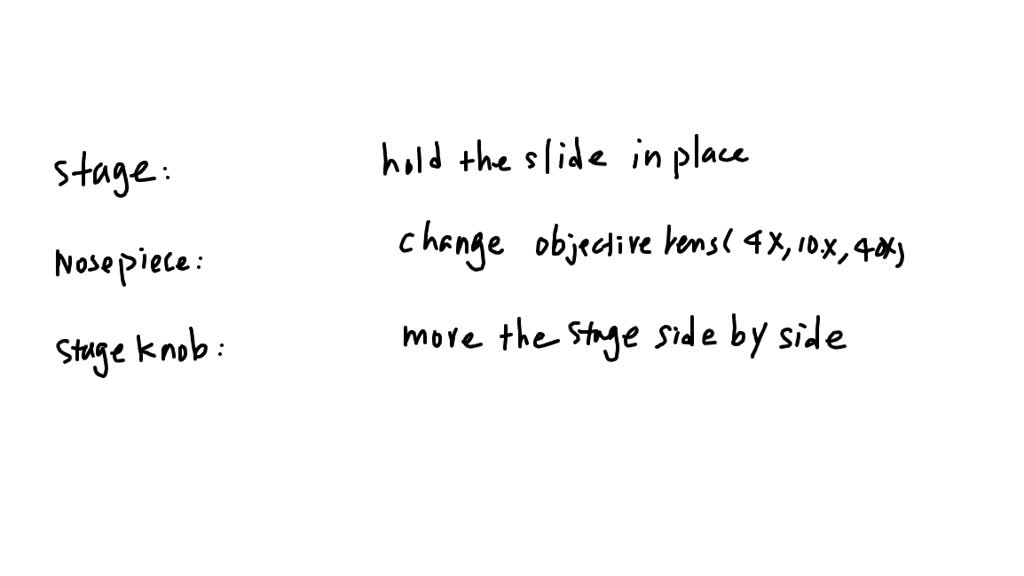 stage: hold the slide in place
Nosepiece: change objective lens (4X, 10X, 40X)
stage knob: move the stage side by side